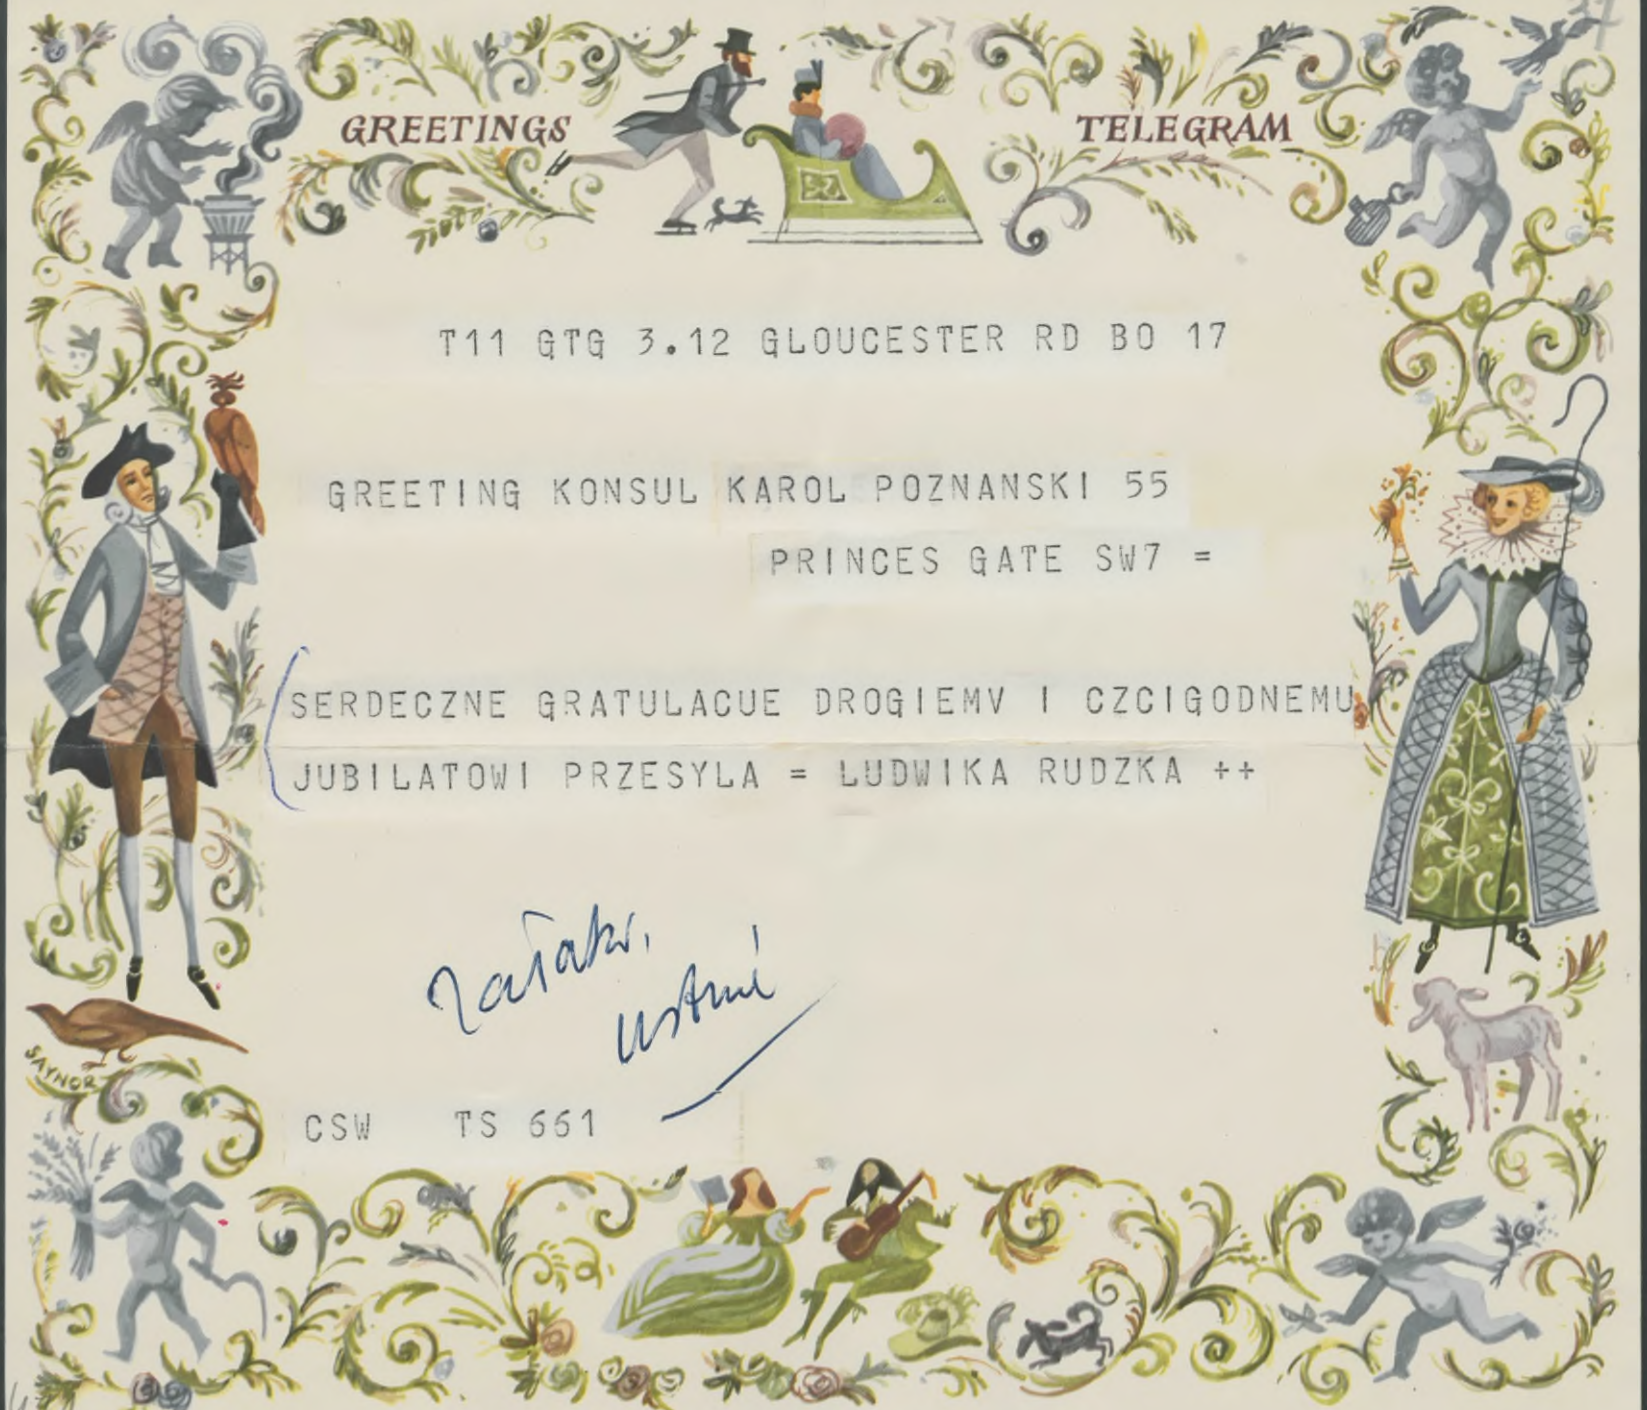 GREETINGS TELEGRAM
T11 GTG 3.12 GLOUCESTER RD BO 17
GREETING KONSUL KAROL POZNANSKI 55
PRINCES GATE SW7 =
SERDECZNE GRATULACUE DROGIEMV I CZCIGODNEMU
JUBILATOWI PRZESYLA = LUDWIKA RUDZKA ++
ustnie
CSW TS 661
SAYNOR